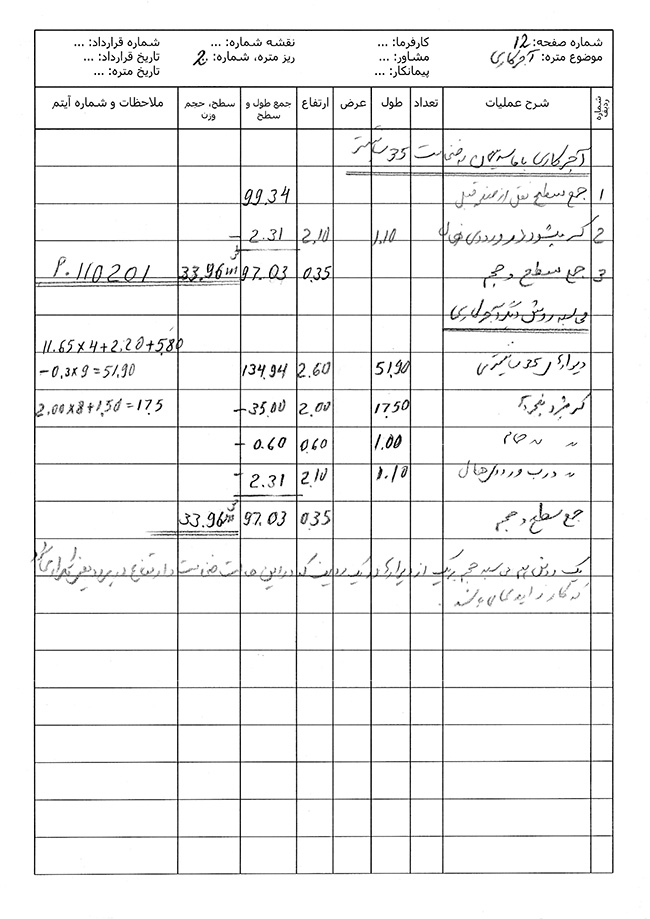 شماره صفحه: 12 کارفرما: ... نقشه شماره: ... شماره قرارداد: ...
موضوع متره: آجرکاری مشاور: ... ریز متره، شماره: 2 تاریخ قرارداد: ...
پیمانکار: ... تاریخ متره: ...
شماره ردیف شرح عملیات تعداد طول عرض ارتفاع جمع طول و سطح سطح، حجم وزن ملاحظات و شماره آیتم
آجرکاری با ماسه سیمان به ضخامت 35 سانتیمتر
1 جمع سطح نقل از صفحه قبل 99.34
2 کسر میشود درب ورودی هال 1.10 2.10 - 2.31
3 جمع سطح و حجم 0.35 97.03 33.96 m³ P.110201
محاسبه روش دیگر آجرکاری
11.65×4+2.20+5.80
دیوارهای 35 سانتیمتری 51.90 2.60 134.94 -0.3×9=51.90
کسر میشود پنجره 17.50 2.00 -35.00 2.00×8+1.50=17.5
〃 〃 حمام 1.00 0.60 - 0.60
〃 درب ورودی هال 1.10 2.10 - 2.31
جمع سطح و حجم 0.35 97.03 33.96 m³
یک روش هم محاسبه حجم هریک از دیوارها در یک ردیف که در این حالت ضخامت و ارتفاع در هر ردیف تکراری